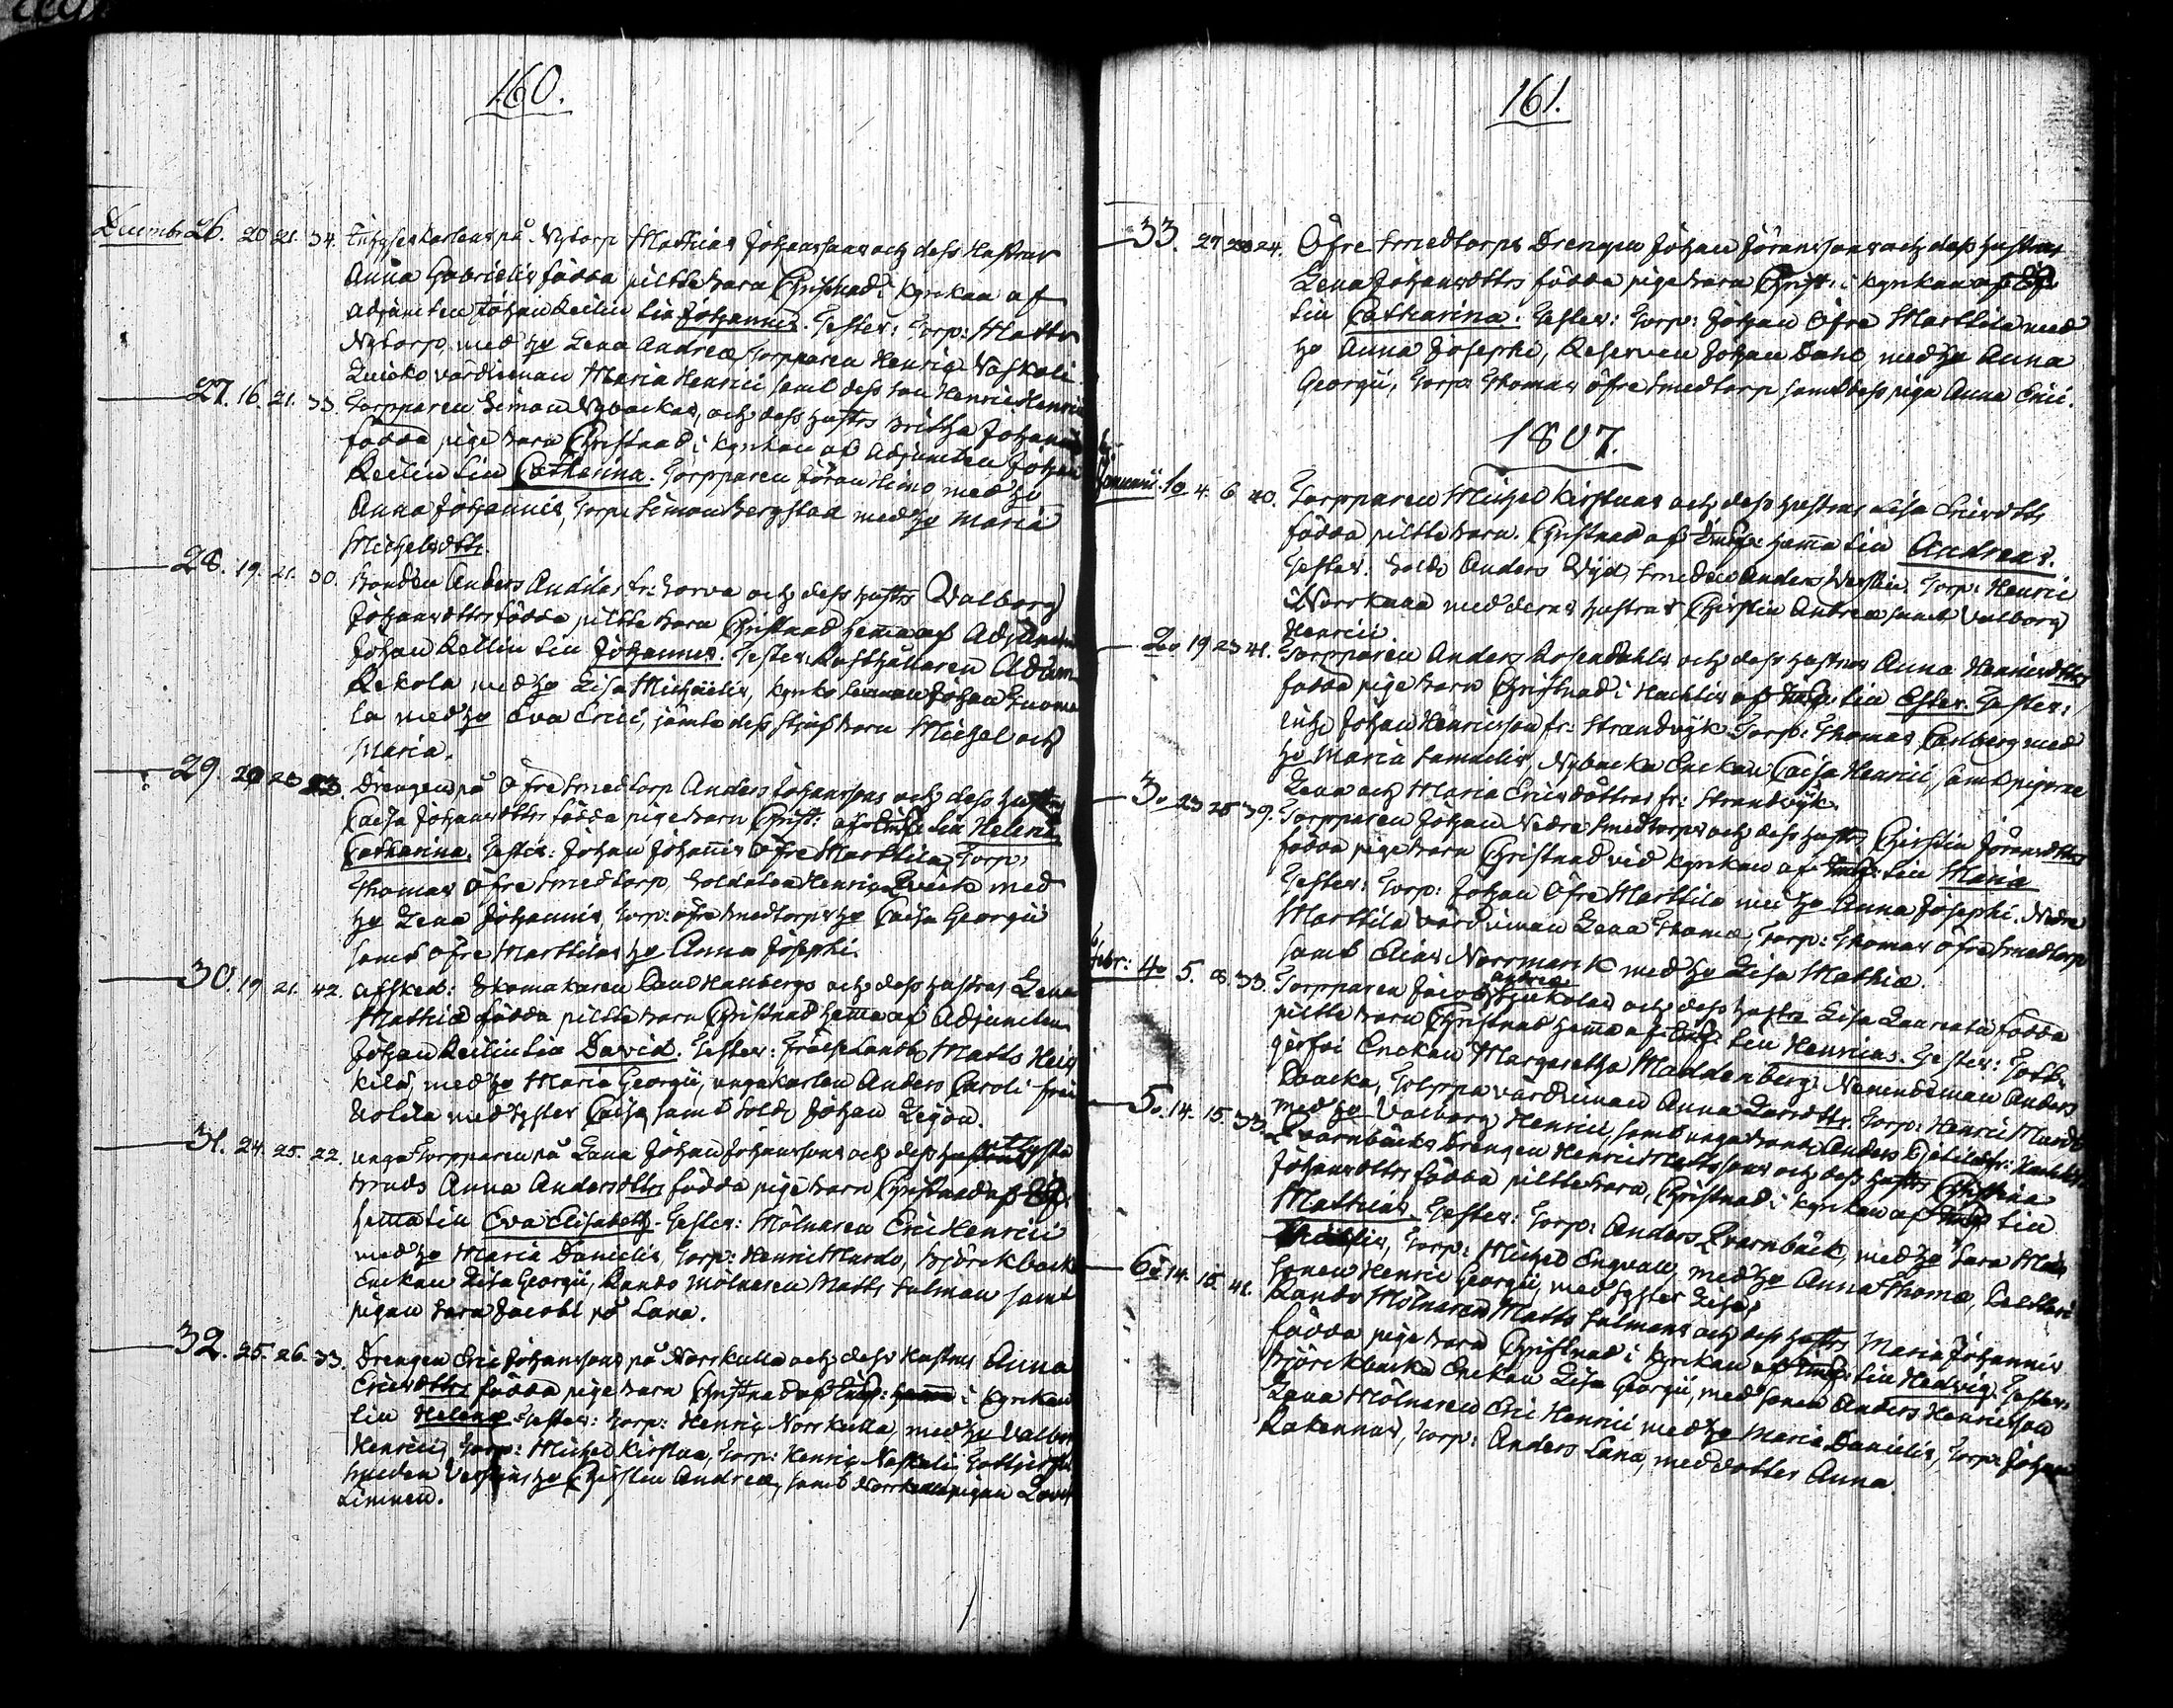 160.
Decembr. 26. 20. 21. 34. på Nytorp Mathias Johanssons och dess Hustrus
Anna Gabrielis födda piltebarn Christnad i kyrkan af
Adjuncten Johan Reilin Lin Johannes. Testes: Torp: Matts
Nytorp, med ho Lena Andreæ, torpparen Henric Naskali
värdinnan Maria Henrici samt dess son Henric Henrici
27. 16. 21. 33. Torpparen Simon Nybackas, och dess hustrs Britha Johannis
födda pigebarn Christnad i kyrkan af Adjuncten Johan
Reilin Lin Catharina. Torpparen Jöran Himo med ho
Anna Johannis, Torp: Simon Bergstad med ho Maria
Michelsdttr.
28. 19. 21. 30. Bonden Anders Andilas fr: och dess hustrs Walborg
Johansdttrs födda piltebarn Christnad hemma af Adjuncten
Johan Reilin Lin Johannes. Testes: Rusthållaren Adam
Rekola med ho Lisa Michaëlis, kyrko Johan Tuoma
la med ho Eva Erici, jämte dess styfbarn Michel och
Maria.
29. 20 23 Drengen på Öfre Smedtorp Anders Johanssons och dess hustrus
Caisa Johansdttrs födda pigebarn Christ: af Lin Helena
Catharina. Testes: Johan Johannis Öfre Marttila, Torp:
Thomas Öfre Smedtorp, Soldaten Henric Qvick med
ho Lena Johannis, Torp: öfre Smedtorps ho Caisa Georgii
samt Öfre Marttilas ho Anna Josephi.
30. 19. 21. 42. Afsked: Skomakaren och dess hustrus Lena
Mathiæ födda piltebarn Christnad hemma af Adjuncten
Johan Reilin Lin David. Testes: Matts Heik
kilä, med ho Maria Georgii, ungakarlen Anders Caroli från
med Syster Caisa, samt Sold: Johan Legon.
31. 24. 25. 22. unga Torpparen på Lana Johan Johanssons och dess
Anna Andersdttrs födda pigebarn Christnad af
hemma Lin Eva Elisabeth. Testes: Mölnaren Eric Henrici
med ho Maria Danielis, Torp: Henric Murdo, Björckbacka
Enckan Lisa Georgii, Mölnaren Matts Salman samt
pigan Sara Jacobi på Lana.
32. 25. 26. 33. Drengen Eric Johanssons på Norrkulla och dess Hustrus Anna
Ericsdttrs födda pigebarn Christnad af i kyrkan
Lin Helena. Testes: Torp: Henric Norrkulla, med ho Valborg
Henrici, Torp: Michel Kirstua, Torp: Henric Naskali
Smeden ho Christin Andreæ, samt pigan
Limnen.
161.
33. 27 24. Öfre Smedtorps Drengen Johan Jöranssons och dess hustrus
Lena Johansdttrs födda pigebarn Christ: i kyrkan af
Lin Catharina: Testes: Torp: Johan Öfre Marttila med
ho Anna Josephi, Reserven Johan Dahl, med ho Anna
Georgii, Torp: Thomas öfre Smedtorp samt dess piga Anna Erici.
1807.
Januarii. 1o 4. 6 40. Torpparen Michel Kirstuas och dess hustrus Lisa Ericsdttrs
födda piltebarn. Christnad af hemma Lin Andreas.
Testes. Sold: Anders Wijd, Smeden Anders Torp: Henric
Norrkulla med deras hustrur Christin Andreæ samt Valborg
Henrici.
2o 19 23 41. Torpparen Anders Rosendahls och dess hustrus Anna Henricsdttrs
födda pigebarn Christnad i af Lin Ester. Testes:
Johan Henricsson fr: Strandvijk. Torp: Thomas Carlberg med
ho Maria Samuelis, Nybacka Enckan Caisa Henrici samt pigorna
Lena och Maria Ericsdöttrar fr: Strandvijk.
3o 23 25 39. Torpparen Johan Nedre Smedtorps och dess hustrs Christin Jöransdttrs
födda pigebarn Christnad vid kyrkan af Lin Maria
Testes: Torp: Johan Öfre Marttila med ho Anna Josephi. Nedre
Marttila värdinnan Lena Thomæ, Torp: Thomas öfre Smedtorp
samt Elias Norrmarck med ho Lisa Mathiæ.
Febr: 4o 5. 8. 33. Torpparen och dess hustrs Lisa Laurentii födda
piltebarn Christnad hemma af Lin Henricus. Testes:
Enckan Margaretha Maddenberg. Nämndeman Anders
Baacka, värdinnan Anna Larsdttr. Torp: Henric Murdo
med ho Valborg Henrici, samt unga Anders fr:
5o. 14. 15. 33. Qvarnbäcks Drengen Henric Mattssons och dess hustrs Christina
Johansdttrs födda piltebarn, Christnad i kyrkan af Lin
Mathias. Testes: Torp: Anders Qvarnbäck, med ho Sara
Torp: Michel Engvall, med ho Anna Thomæ,
sonen Henric Georgii med Syster Lisa.
6o 14. 15. 41. Mölnaren Matts Salmans och dess hustrs Maria Johannis
födda pigebarn Christnad i kyrkan af Lin Hedvig. Testes:
Björckbacka Enckan Lisa Georgii, med sonen Anders Henricsson
Lana Mölnaren Eric Henrici med ho Maria Danielis, Torp: Johan
Rakennus, Torp: Anders Lana, med dotter Anna